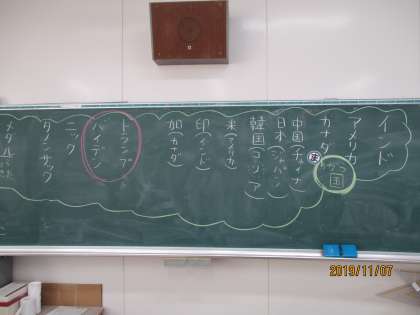 インド
アメリカ
カナダ
国
中国(チャイナ)
日本(ジャパン)
韓国(コリア)
米(アメリカ)
印(インド)
加(カナダ)
トランプ
バイデン
ニック
2019/11/07